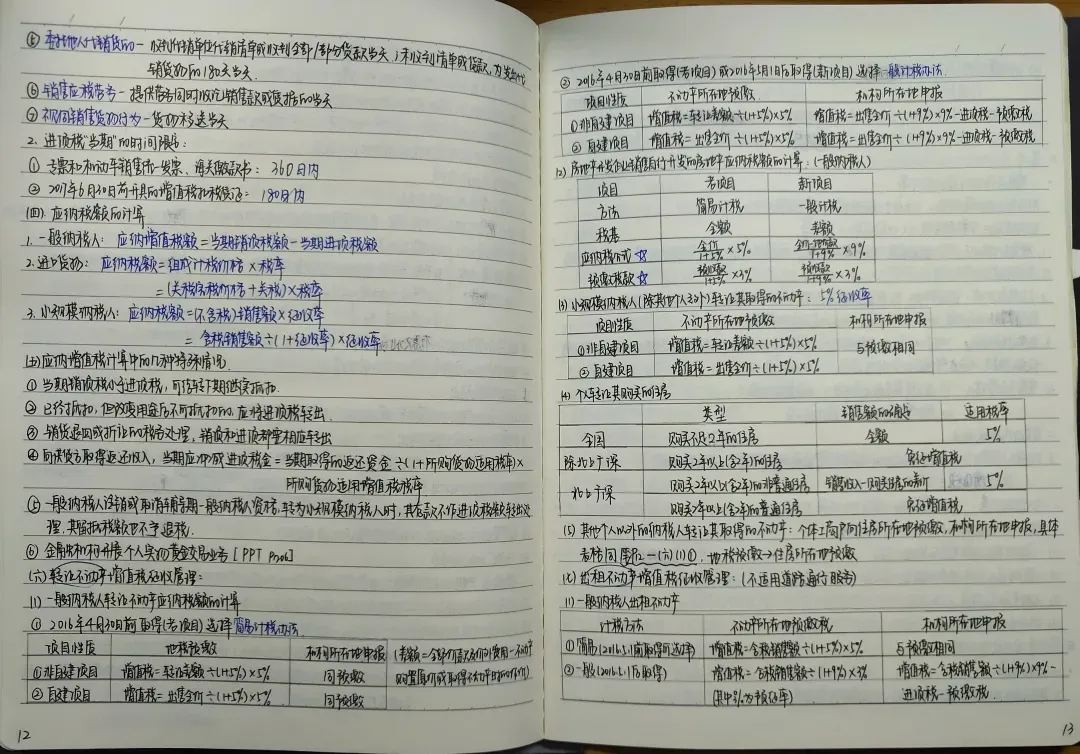 ⑤ 委托他人代销货的—收到代销单位代销清单或收到全部/部分货款当天；未收到清单或货款，为发出代
销货物的180天当天.
⑥ 销售应税劳务—提供劳务同时收讫销售款或凭据的当天
⑦ 视同销售货物行为—货物移送当天
2. 进项税"当期"的时间限定：
① 专票和机动车销售统一发票、海关缴款书：360日内
② 2017年6月30日前开具的增值税扣税凭证：180日内
(四). 应纳税额的计算
1. 一般纳税人：应纳增值税额=当期销项税额-当期进项税额
2. 进口货物：应纳税额=组成计税价格×税率
=(关税完税价格+关税)×税率
3. 小规模纳税人：应纳税额=(不含税)销售额×征收率
=含税销售额÷(1+征收率)×征收率
(五)应纳增值税计算中的几种特殊情况
① 当期销项税小于进项税，可结转下期继续抵扣.
② 已经抵扣，但改变用途后不所抵扣的，应将进项税转出.
③ 销货退回或折让的税务处理，销项和进项都要相应转出
④ 向供货方取得返还收入，当期应冲减进项税金=当期取得的返还资金÷(1+所购货物适用税率)×
所购货物适用增值税税率
⑤ 一般纳税人注销或取消辅导期一般纳税人资格，转为小规模纳税人时，其存款不作进项税额转出处
理，其留抵税额也不予退税.
⑥ 金融机构开展个人实物黄金交易业务 [PPT P106]
(六) 转让不动产增值税征收管理：
(1) 一般纳税人转让不动产应纳税额的计算
① 2016年4月30日前取得(老项目)选择简易计税办法
项目性质 地税预缴 机构所在地申报 (差额=全部价款及价外费用-不动产
①非自建项目 增值税=转让差额÷(1+5%)×5% 同预缴 购置原价或取得不动产时的作价)
② 自建项目 增值税=出售全价÷(1+5%)×5% 同预缴
12
② 2016年4月30日前取得(老项目)或2016年5月1日后取得(新项目)选择一般计税办法.
项目性质 不动产所在地预缴 机构所在地申报
①非自建项目 增值税=转让差额÷(1+5%)×5% 增值税=出售全价÷(1+9%)×9%-进项税-预缴税
② 自建项目 增值税=出售全价÷(1+5%)×5% 增值税=出售全价÷(1+9%)×9%-进项税-预缴税
(2) 房地产开发企业销售自行开发的房地产应纳税额的计算：(一般纳税人)
项目 老项目 新项目
方法 简易计税 一般计税
税基 全额 差额
应纳税公式☆ 全价/1+5%×5% 全价-地价款/1+9%×9%
预缴税款☆ 预收款/1+5%×3% 预收款/1+9%×3%
(3) 小规模纳税人(除其他个人之外)转让其取得的不动产：5%征收率
项目性质 不动产所在地预缴 机构所在地申报
①非自建项目 增值税=转让差额÷(1+5%)×5% 与预缴相同
② 自建项目 增值税=出售全价÷(1+5%)×5%
(4) 个人转让其购买的住房
类型 销售额的确定 适用税率
全国 购买不足2年的住房 全额 5%
除北上广深 购买2年以上(含2年)的住房 免征增值税
北上广深 购买2年以上(含2年)的非普通住房 销售收入-购买住房的价 5%
购买2年以上(含2年)的普通住房 免征增值税
(5) 其他个人以外的纳税人转让其取得的不动产：个体工商户向住房所在地预缴，机构所在地申报，具体
表格同 (六)(1)①，地税预缴→住房所在地预缴
(七) 出租不动产增值税征收管理：(不适用道路通行服务)
(1) 一般纳税人出租不动产
计税方法 不动产所在地预缴税 机构所在地申报
①简易(2016.5.1前取得可选择) 增值税=含税销售额÷(1+5%)×5% 与预缴相同
②一般(2016.5.1后取得) 增值税=含税销售额÷(1+9%)×3% 增值税=含税销售额÷(1+9%)×9%-
(其中3%为预征率) 进项税-预缴税
13